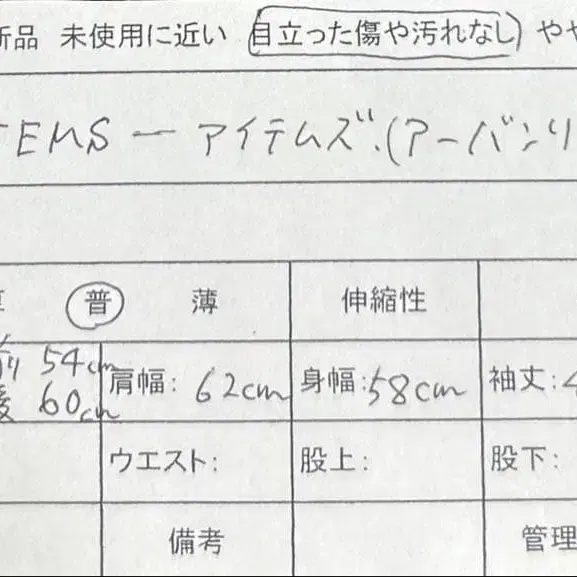 新品 未使用に近い 目立った傷や汚れなし やや
TEMS ー アイテムズ.(アーバンリ
普 薄 伸縮性
前 54cm 肩幅: 62cm 身幅:58cm 袖丈:
後 60cm
ウエスト: 股上: 股下:
備考 管理